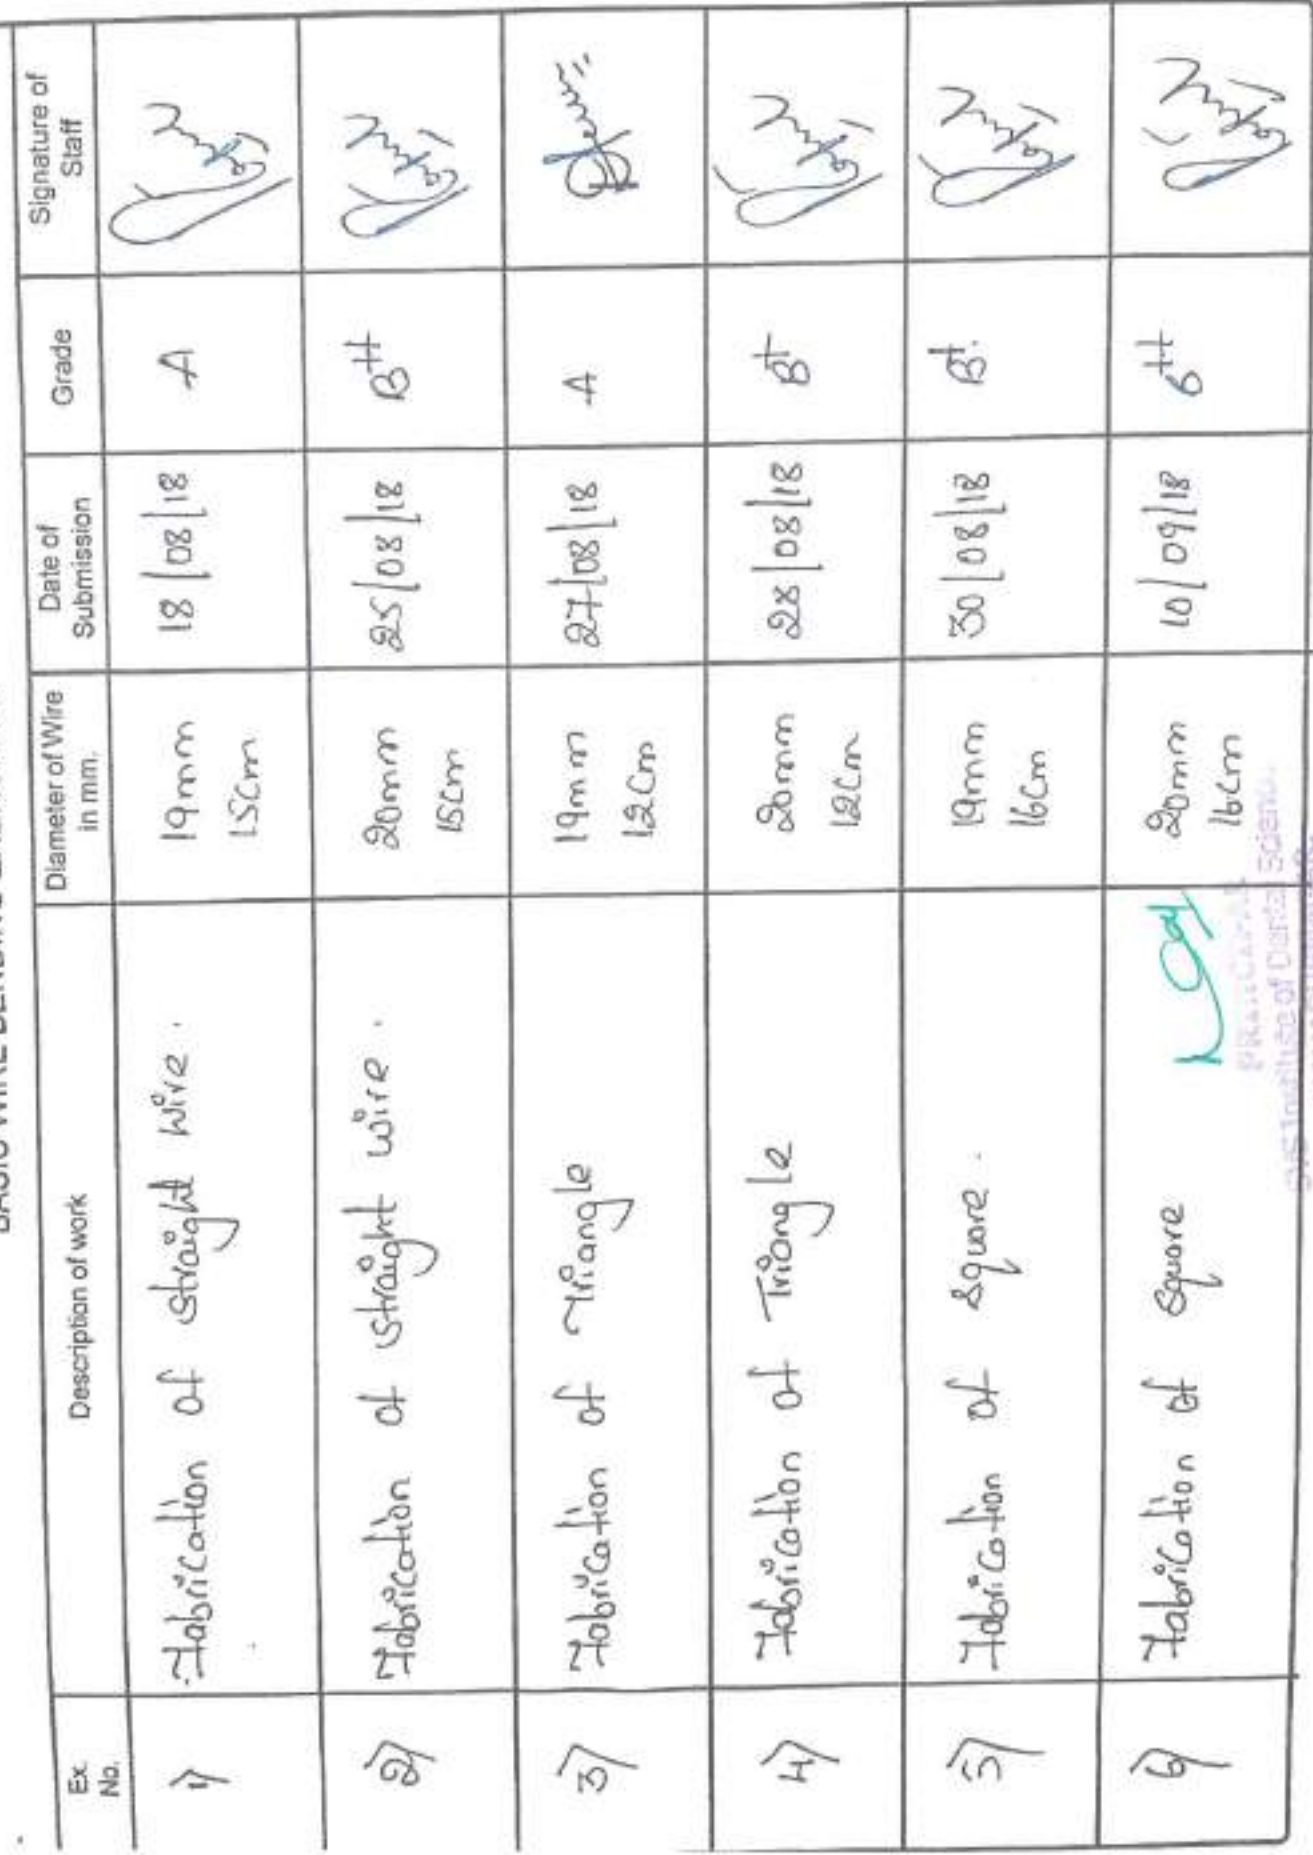 BASIC WIRE BENDING
Ex. No.
Description of work
Diameter of Wire in mm.
Date of Submission
Grade
Signature of Staff
1) Fabrication of straight wire. 19mm 15cm 18/08/18 A
2) Fabrication of straight wire. 20mm 15cm 25/08/18 B++
3) Fabrication of Triangle 19mm 12cm 27/08/18 A
4) Fabrication of Triangle 20mm 12cm 28/08/18 B+
5) Fabrication of square. 19mm 16cm 30/08/18 B+
6) Fabrication of square 20mm 16cm 10/09/18 B++
PRINCIPAL
Institute of Dental